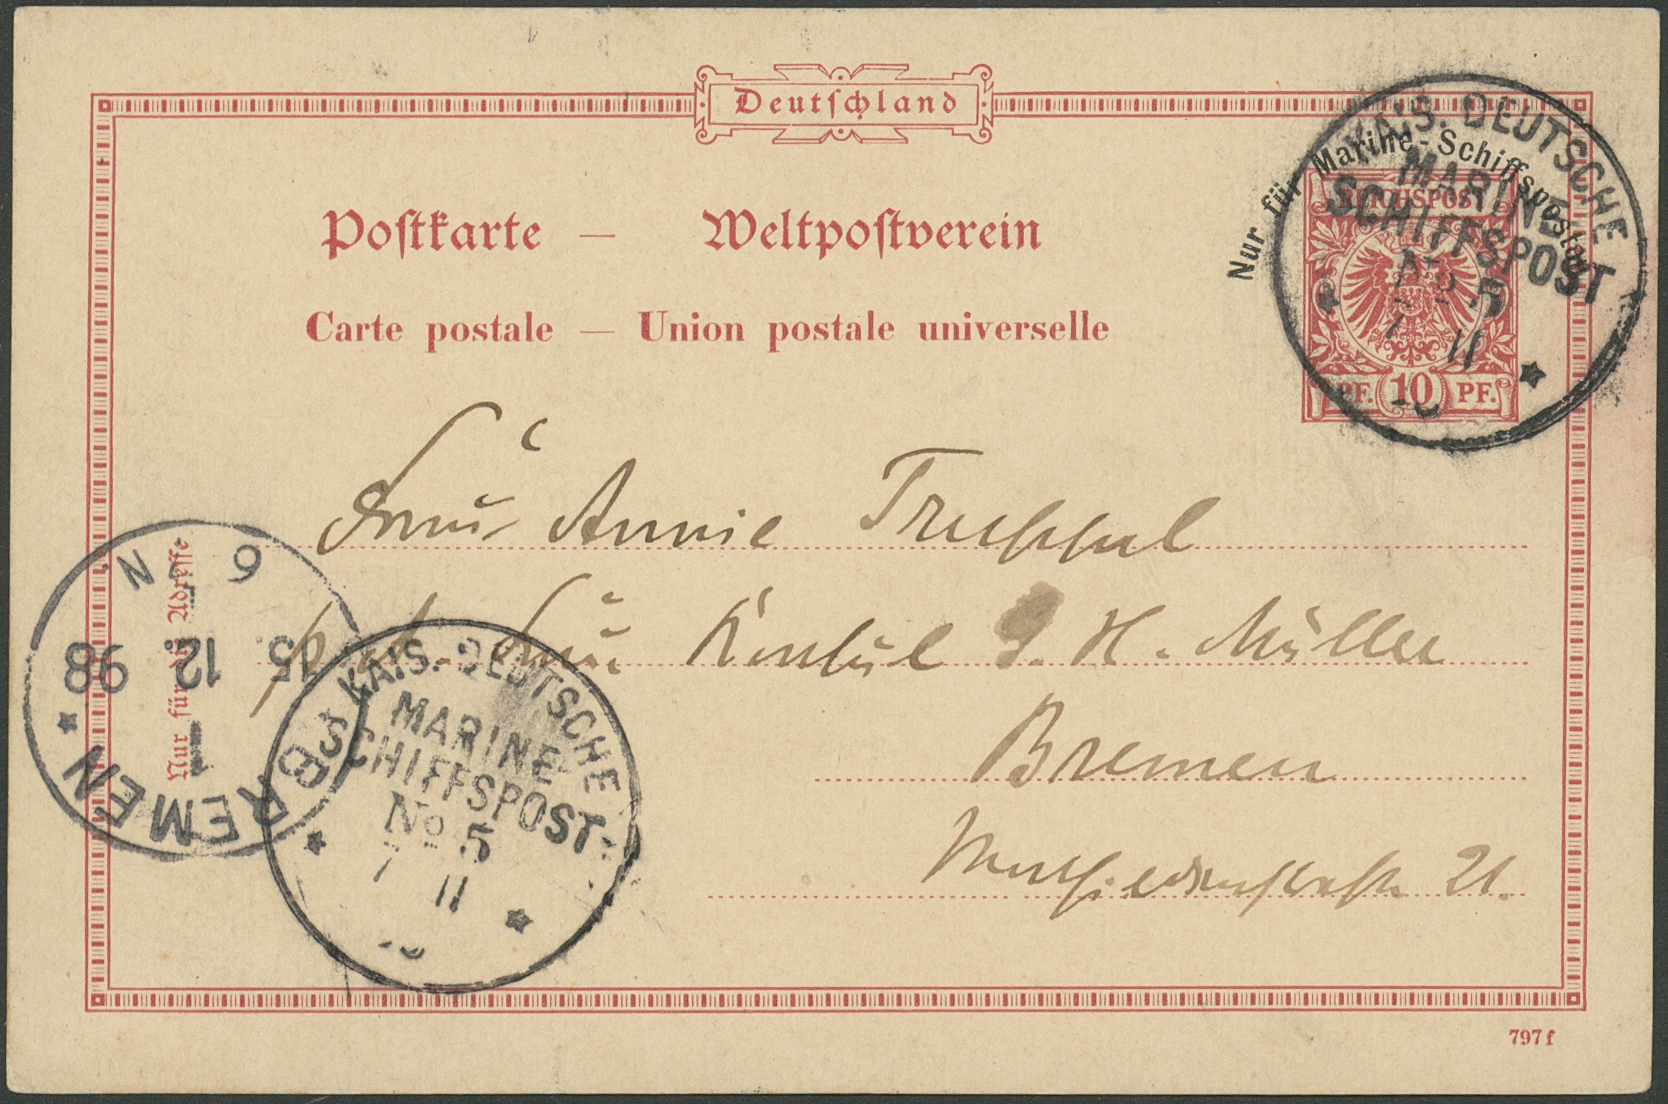 Deutschland
Postkarte — Weltpostverein
Carte postale — Union postale universelle
Nur für Marine-Schiffsposten
REICHSPOST
PF. 10 PF.
KAIS. DEUTSCHE
MARINE
SCHIFFSPOST
No 5
7 11
Frau Annie Truppel
Frau Konsul G. H. Müller
Bremen
21.
Nur für die Adresse
BREMEN
1
15 12. 98
6 7 N
KAIS. DEUTSCHE
MARINE
SCHIFFSPOST
No 5
7 11
797 f